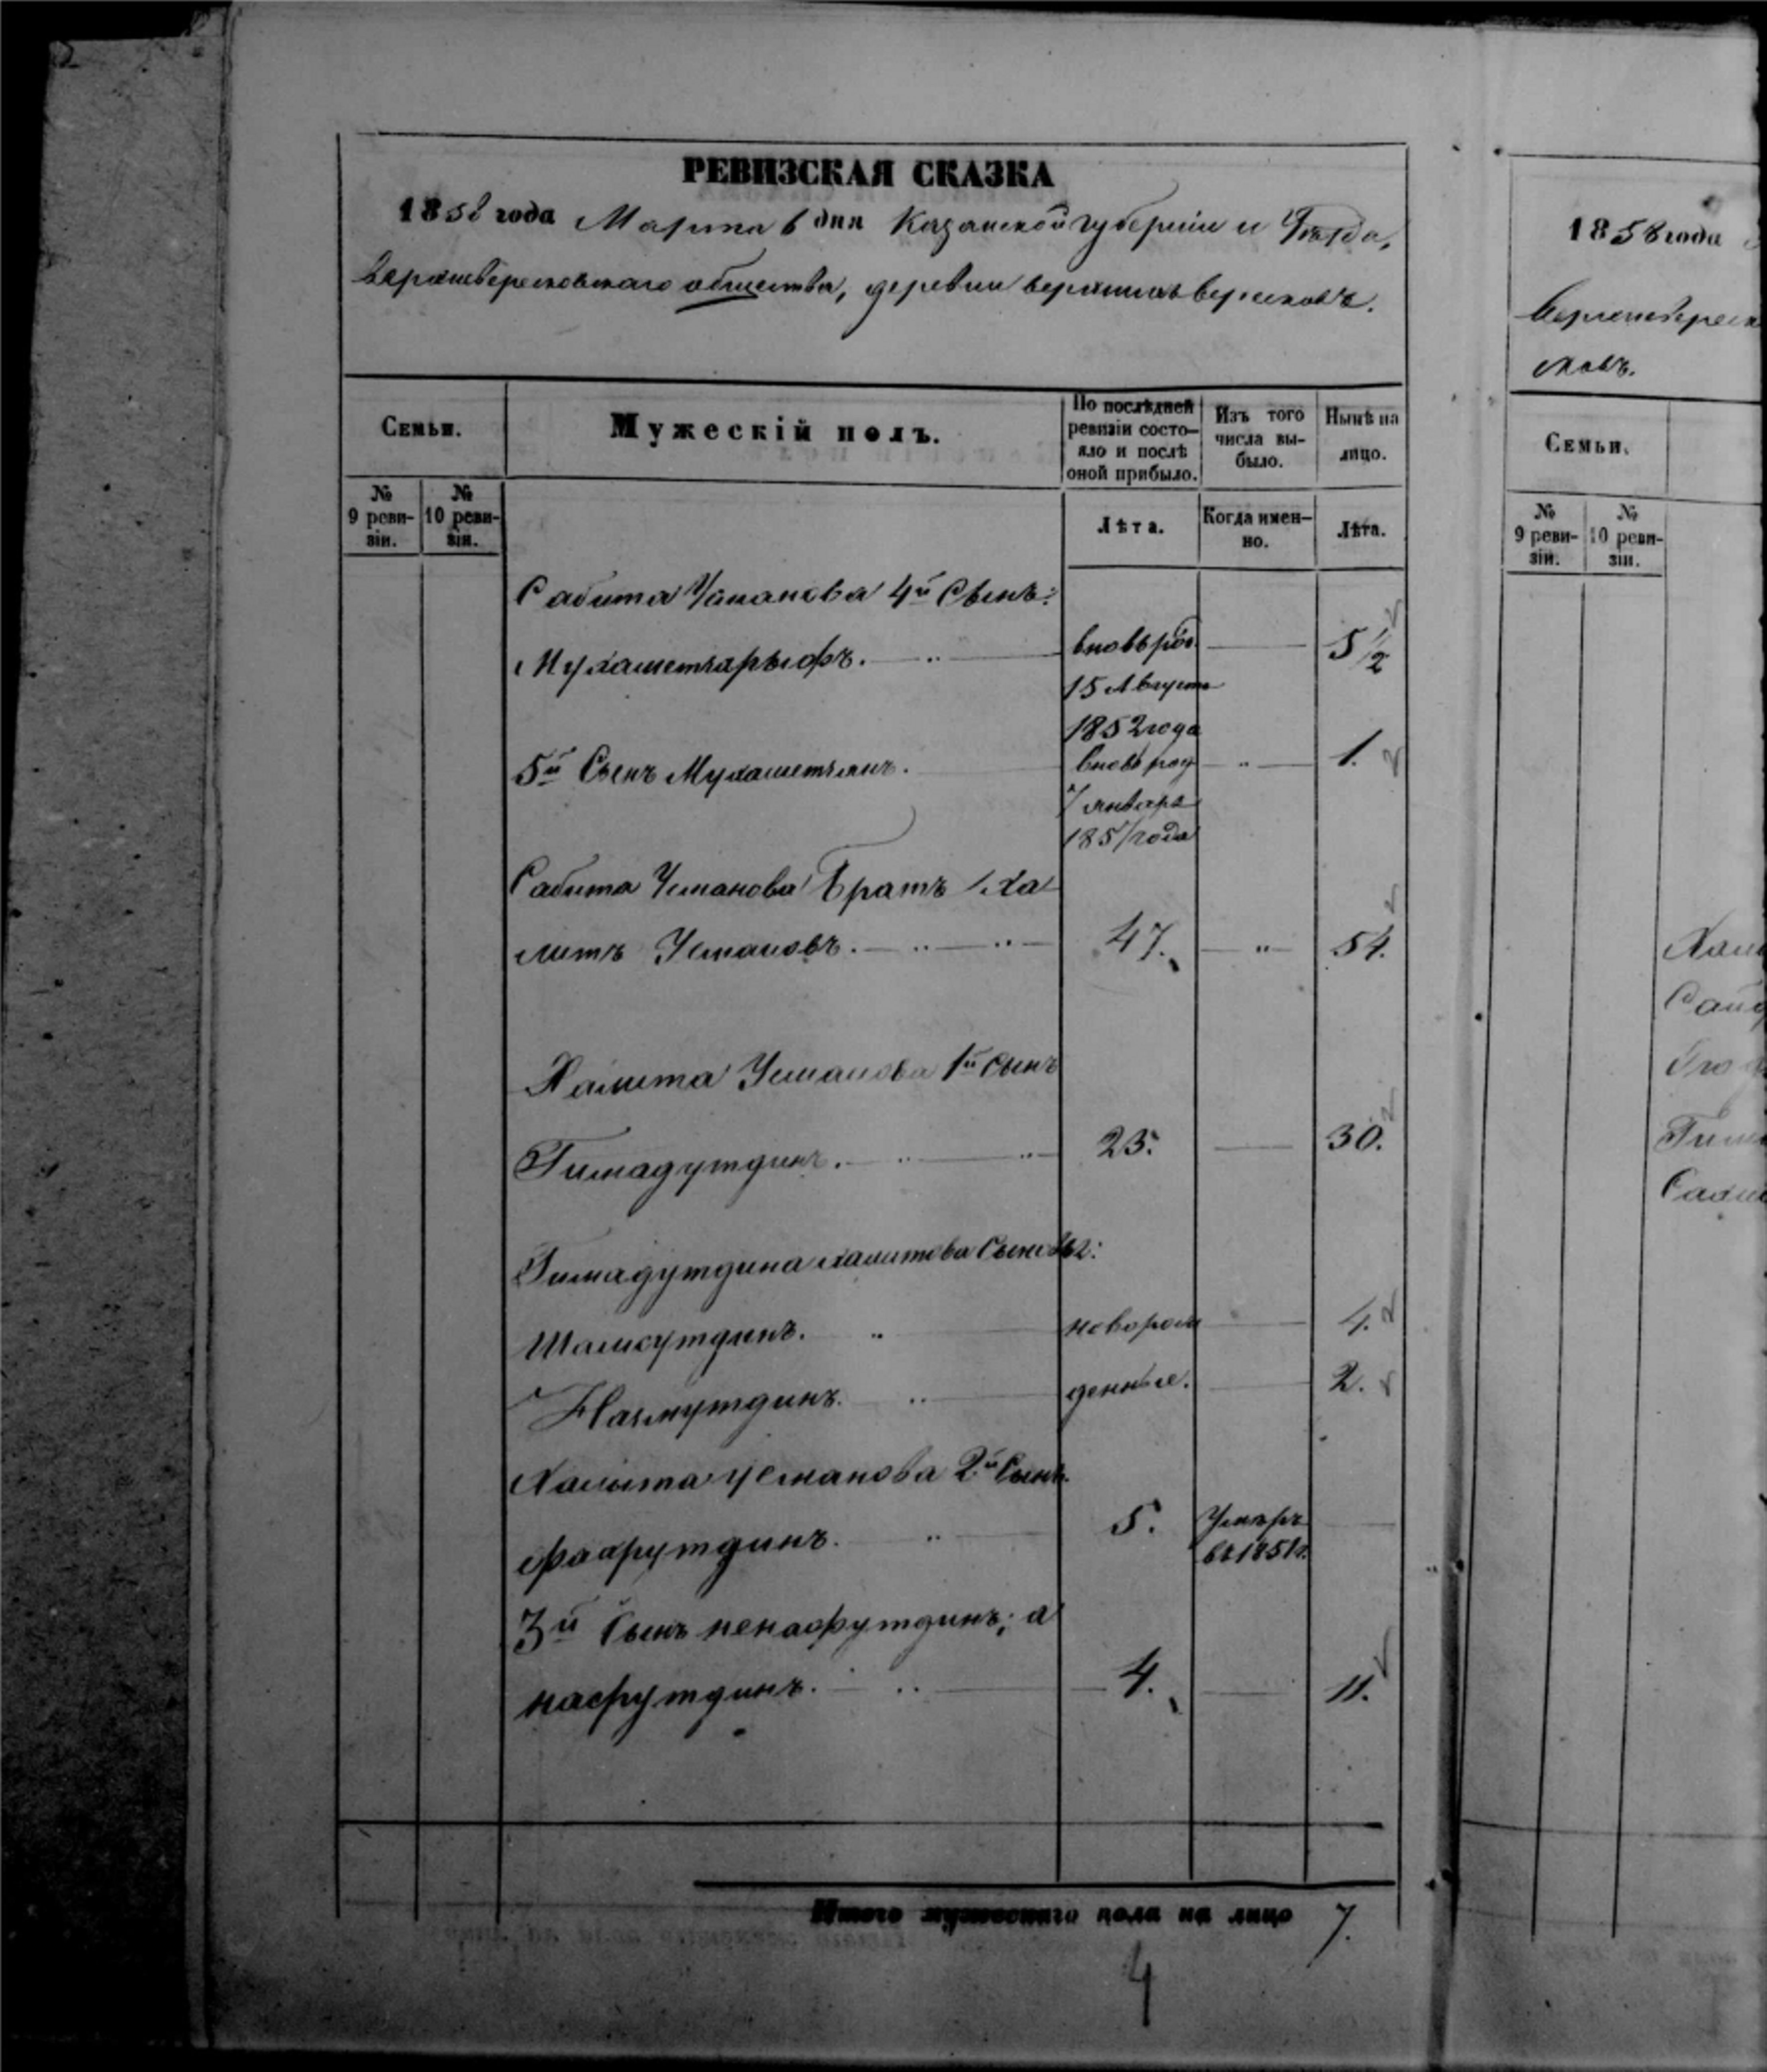 РЕВИЗСКАЯ СКАЗКА
1858 года Марта 6 дня Казанской губерніи и Уѣзда,
верхневересковскаго общества, деревни верхнихъ вересковъ.
Семьи.
Мужескій полъ.
По послѣдней ревизіи состояло и послѣ оной прибыло.
Изъ того числа выбыло.
Нынѣ на лицо.
№ 9 ревизіи.
№ 10 ревизіи.
Лѣта.
Когда именно.
Лѣта.
Сабита Усманова 4й Сынъ:
Мухаметшарыфъ. вновь род 5 1/2
15 Августа
1852 года
5й Сынъ Мухаметзянъ. вновь род 1.
7 январь
1857 года
Сабита Усманова Братъ Ха
митъ Усмановъ. 47. 54.
Хамита Усманова 1й Сынъ
Гимадутдинъ. 23. 30.
Гимадутдина хамитова Сыновья:
Шамсутдинъ. новорож 4.
Назмутдинъ. денные. 2.
Хамита усманова 2й Сынъ
Фахрутдинъ. 5. Умеръ
въ 1851 г.
3й Сынъ ненасфутдинъ; а
насрутдинъ. 4. 11.
Итого мужескаго пола на лицо 7.
4
1858 года
мовъ.
Семьи.
№ 9 ревизіи.
№ 10 ревизіи.